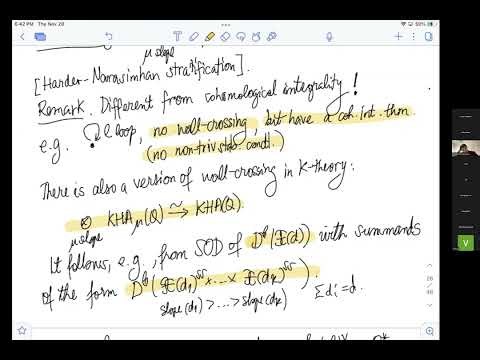 6:42 PM Thu Nov 20
μ slope
[Harder-Narasimhan stratification].
Remark. Different from cohomological integrality!
e.g. ℓ loop, no wall-crossing, but have a coh. int. thm.
(no non-triv stab. condt.)
There is also a version of wall-crossing in K-theory:
⊗ KHA_μ(Q) ⥲ KHA(Q).
μ slope
It follows, e.g., from SOD of D^b(𝒳(d)) with summands
of the form D^b(𝒳(d₁)^ss × ... × 𝒳(d_k)^ss).
slope(d₁) > ... > slope(d_k) Σdᵢ = d.
26
48
V